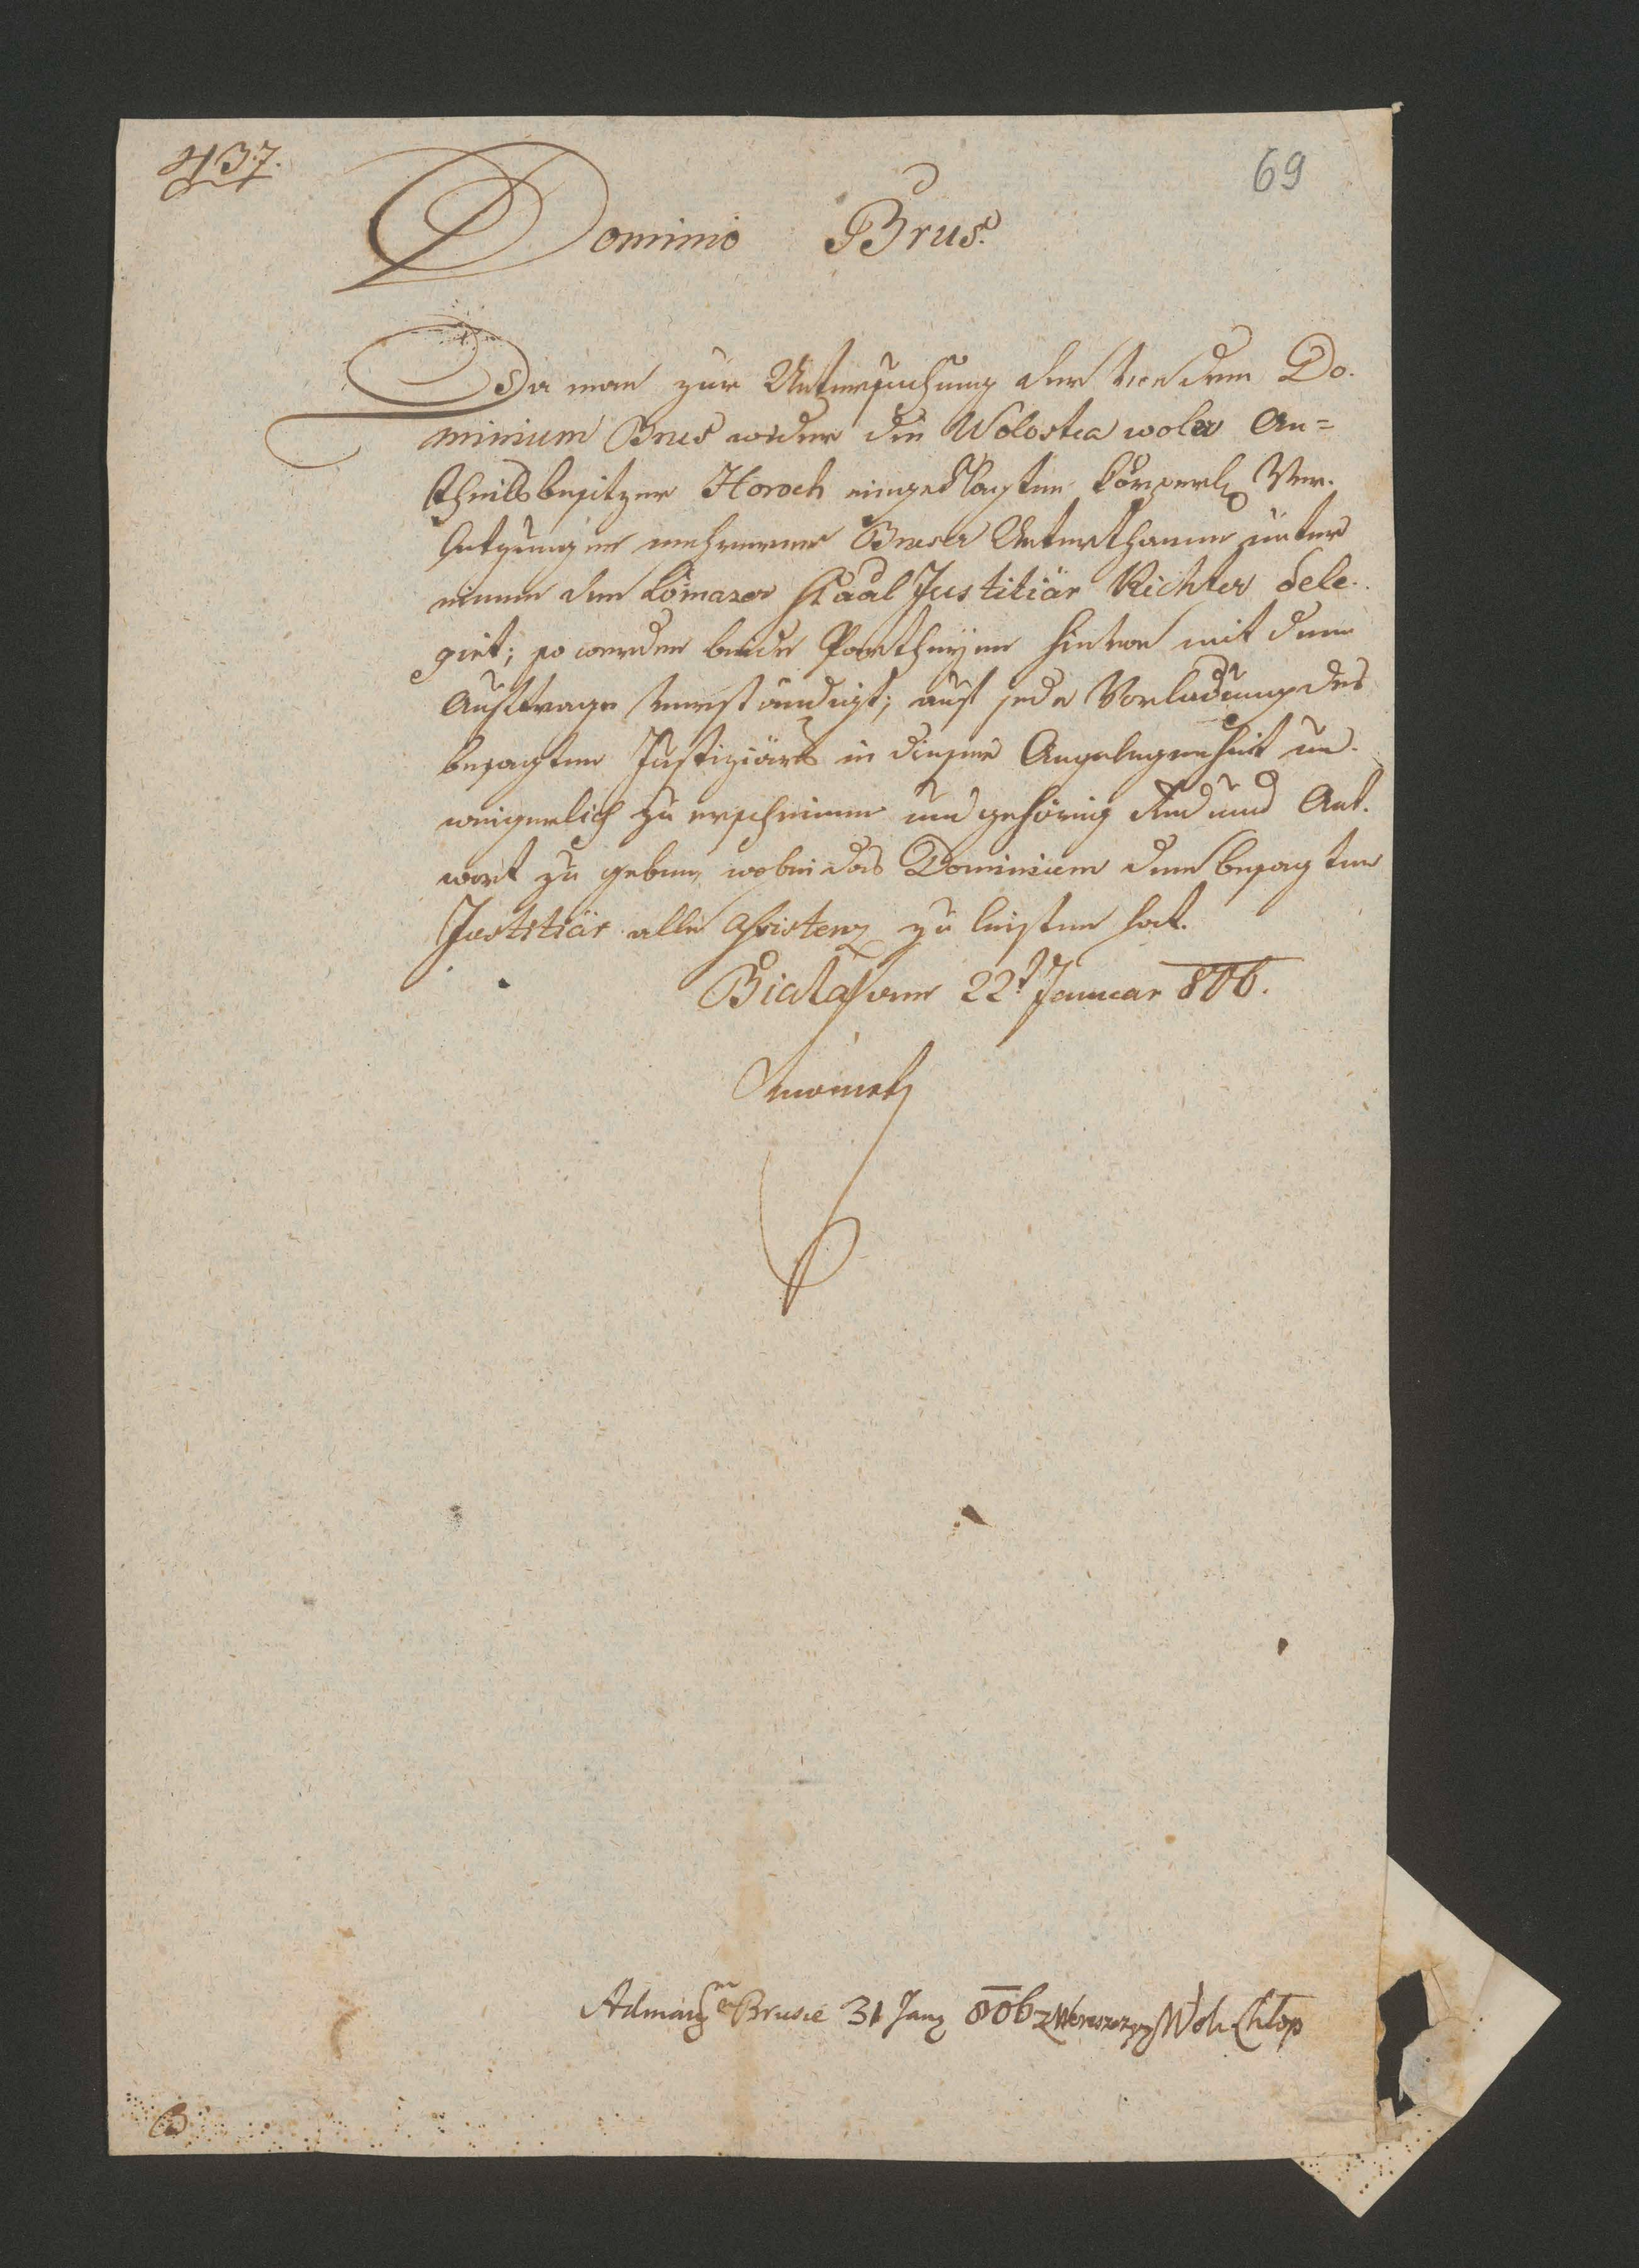 437.
69
Dominio Brus.
Da man zur Untersuchung der von dem Do-
minium Brus wider die Wolostea woler An=
theilsbesitzer Horoch eingeklagten körperl. Ver-
letzungen mehrerer Bruser Unterthanen unter
einem den Lomazer Kaal Justitiär Richter dele-
girt; so werden beide Partheyen hievon mit dem
Auftrage verständigt; auf jede Vorladung des
besagten Justiziärs in dieser Angelegenheit un-
weigerlich zu erscheinen und gehörig Red und Ant-
wort zu geben, wobei das Dominium dem besagten
Justitiär alle Assistenz zu leisten hat.
Biala am 22t Januar 806.
Brusie 31 Janz 806 z Wereszczyn Woli Chłop